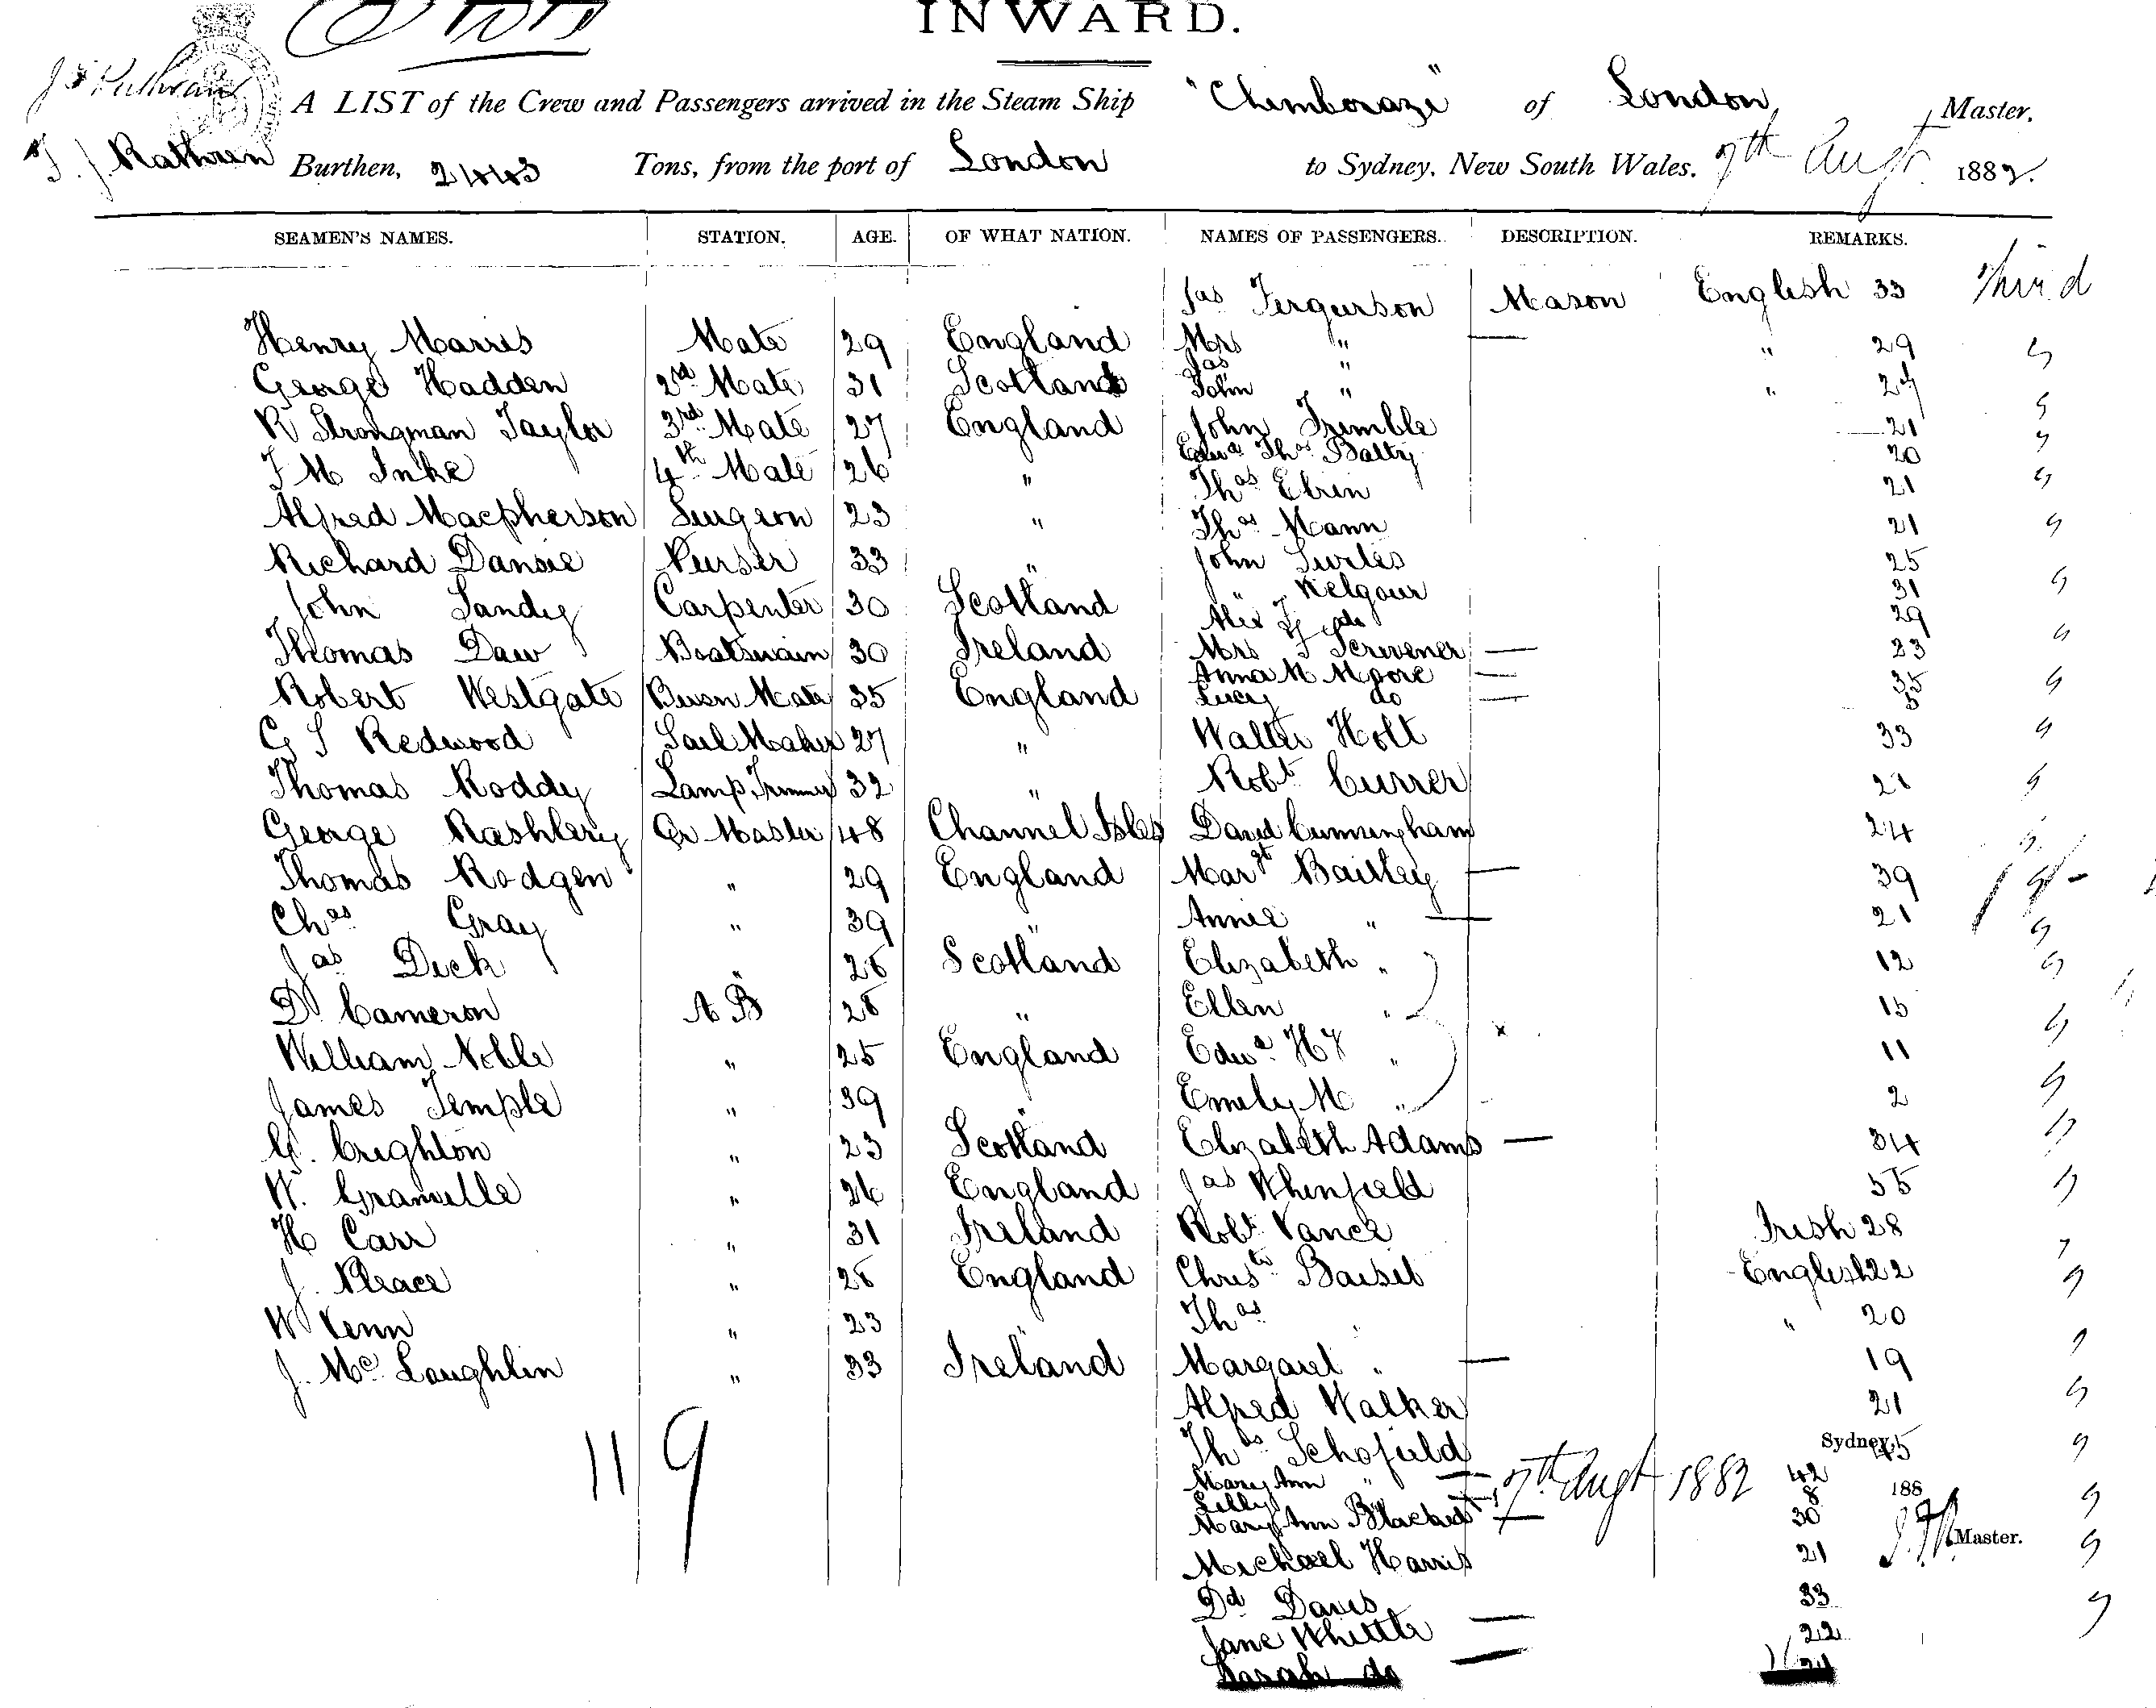 INWARD.
A LIST of the Crew and Passengers arrived in the Steam Ship "Chimborazo" of London, Master.
J. J. Rathven Burthen, 2443 Tons, from the port of London to Sydney, New South Wales. 7th Augt. 1882.
SEAMEN'S NAMES. STATION. AGE. OF WHAT NATION. NAMES OF PASSENGERS. DESCRIPTION. REMARKS.
Jas Fergurson Mason English 33 Third
Henry Marris Mate 29 England Mrs " — " 29 "
Jas "
George Hadden 2nd Mate 31 Scotland John " "
R Strongman Taylor 3rd Mate 27 England John Trimble 21
Edwd Thos Batty 20
F M Inke 4th Mate 26 " Thos Ebrin 21
Alfred Macpherson Surgeon 23 " Thos Mann 21
Richard Dansie Purser 33 " John Surtes 25
" Kelgour 31
John Sandy Carpenter 30 Scotland Alex do 29
Thomas Daw Boatswain 30 Ireland Mrs Scrivener — 23
Anna M Moore — 35
Robert Westgate Bosn Mate 35 England Lucy do — 5
G S Redwood Sail Maker 27 " Walter Holt 33
Thomas Roddy Lamp Trimmer 32 " Robt Currer 21
George Rashlery Qr Master 48 Channel Isles David Cunningham 24
Thomas Rodgen " 29 England Margt Bailley — 39
Chas Gray " 39 " Annie " — 21
Jas Dick " 28 Scotland Elizabeth " 12
D Cameron A B 28 " Ellen " 15
William Noble " 25 England Edwd Hy " x 11
James Temple " 39 " Emely M " 2
G. Crighton " 23 Scotland Elizabeth Adams — 34
W. Granville " 26 England Jas Whinfield 55
H Carr " 31 Ireland Robt Vance Irish 28
J. Pleace " 28 England Christr Baisil English 22
W Venn " 23 " Thos " " 20
J. Mc Loughlin " 33 Ireland Margaret " — 19
Alfred Walker 21
119 Thos Schofield Sydney, 45
Mary Ann " — 7th Augt 1882 42 188
Lilly " 8
Mary Ann — 30
Michael Harris 21 Master.
Dd Davis 33
Jane Whittle — 22
Sarah do —